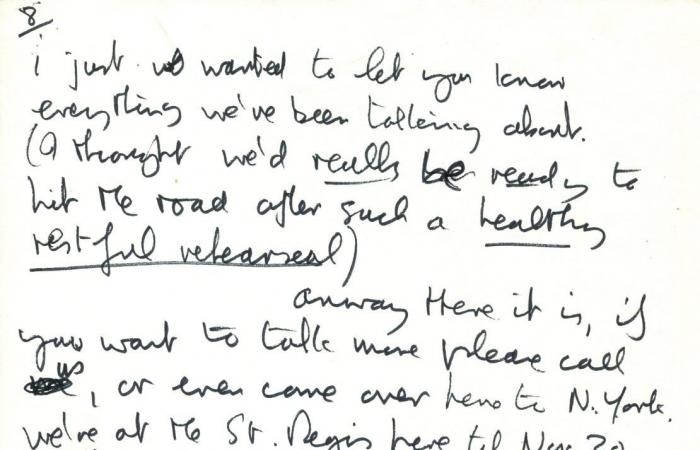 8
i just wanted to let you know
everything we've been talking about.
(I thought we'd really be ready to
hit the road after such a healthy
restful rehearseal)
anway there it is, if
you want to talk more please call
us, or even come over here to N. York.
we're at the St. Regis here til Nov 30